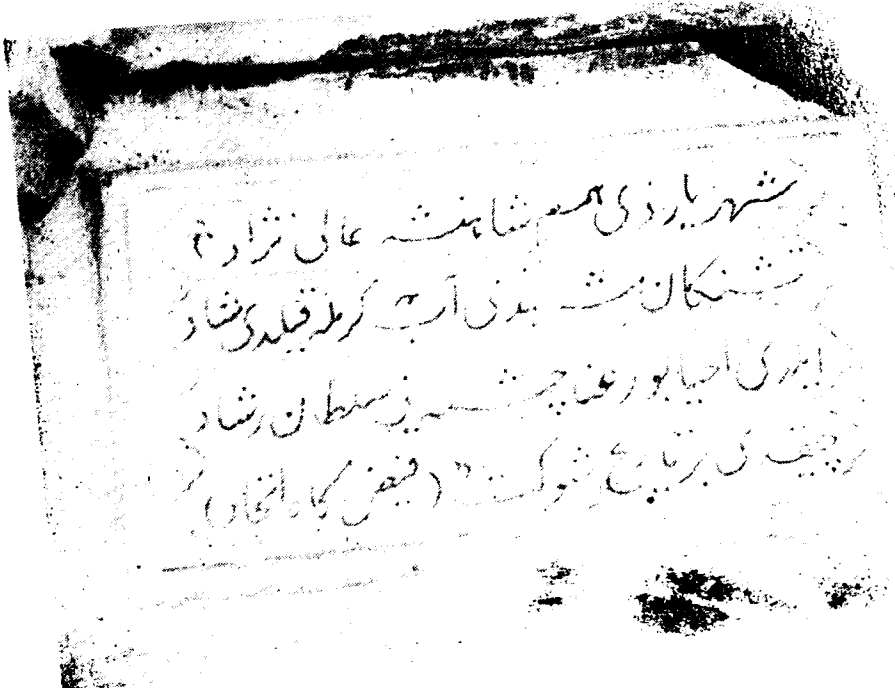 شهریار ذی همم شاهنشه عالی نژاد
تشنکان بندنی آب کرمله قیلدی شاد
ایلدی احیا بو رعنا چشمه‌یی سلطان رشاد
چیقدی بر تاریخ شوکت (فیض کاه اتحاد)